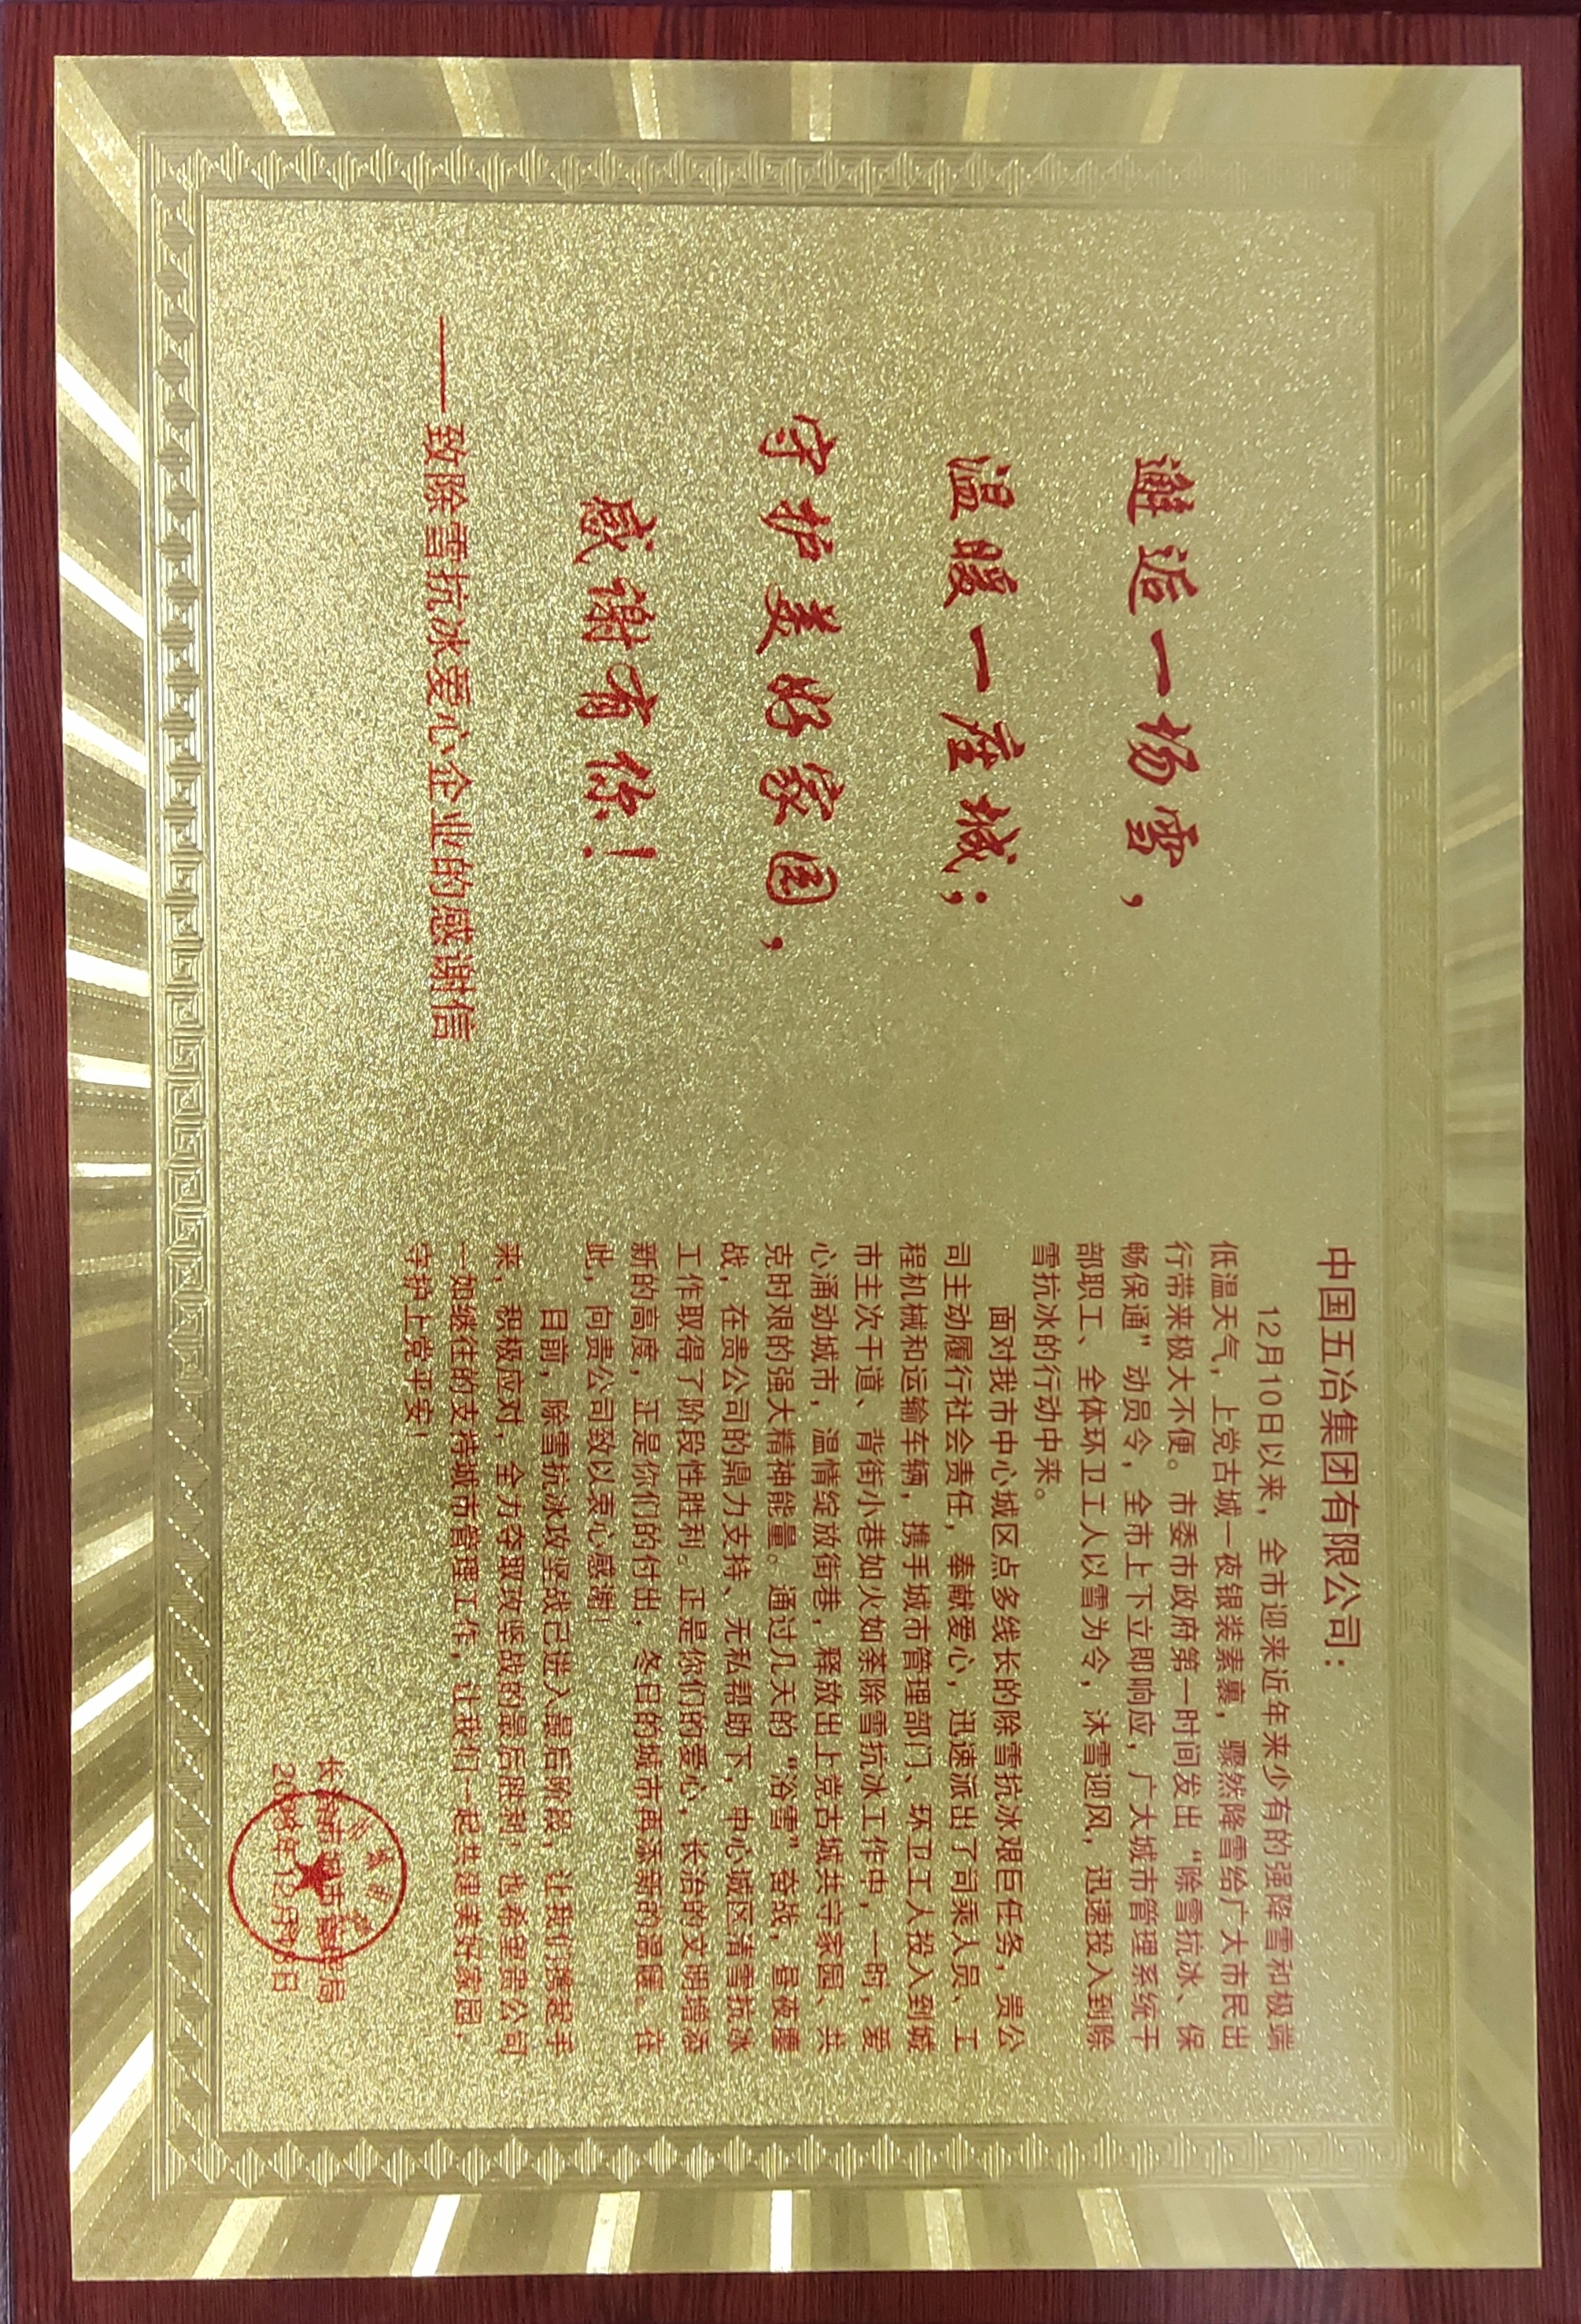 邂逅一场雪，
温暖一座城；
守护美好家园，
感谢有你！
——致除雪抗冰爱心企业的感谢信
中国五冶集团有限公司：
12月10日以来，全市迎来近年来少有的强降雪和极端
低温天气，上党古城一夜银装素裹，骤然降雪给广大市民出
行带来极大不便。市委市政府第一时间发出“除雪抗冰、保
畅保通”动员令，全市上下立即响应，广大城市管理系统干
部职工、全体环卫工人以雪为令，沐雪迎风，迅速投入到除
雪抗冰的行动中来。
面对我市中心城区点多线长的除雪抗冰艰巨任务，贵公
司主动履行社会责任，奉献爱心，迅速派出了司乘人员、工
程机械和运输车辆，携手城市管理部门、环卫工人投入到城
市主次干道、背街小巷如火如荼除雪抗冰工作中，一时，爱
心涌动城市，温情绽放街巷，释放出上党古城共守家园、共
克时艰的强大精神能量。通过几天的“浴雪”奋战，昼夜鏖
战，在贵公司的鼎力支持、无私帮助下，中心城区清雪抗冰
工作取得了阶段性胜利。正是你们的爱心，长治的文明增添
新的高度，正是你们的付出，冬日的城市再添新的温暖。在
此，向贵公司致以衷心感谢！
目前，除雪抗冰攻坚战已进入最后阶段，让我们携起手
来，积极应对，全力夺取攻坚战的最后胜利，也希望贵公司
一如继往的支持城市管理工作，让我们一起共建美好家园，
守护上党平安！
长治市城市管理局
2023年12月18日